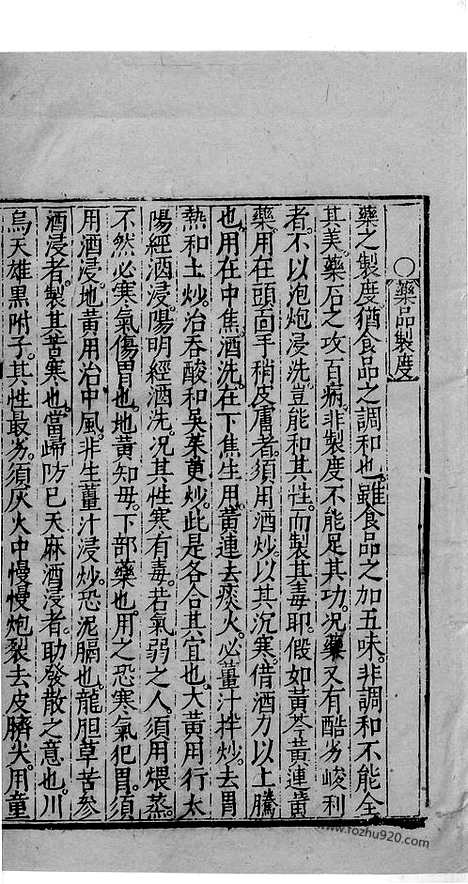 ○藥品製度
藥之製度猶食品之調和也雖食品之加五味非調和不能全
其美藥石之攻百病非製度不能足其功况藥又有酷劣峻利
者不以泡炮浸洗豈能和其性而製其毒耶假如黃芩黃連黃
藥用在頭面手稍皮膚者須用酒炒以其沉寒借酒力以上騰
也用在中焦酒洗在下焦生用黃連去痰火必薑汁拌炒去胃
熱和土炒治吞酸和吳茱萸炒此是各合其宜也大黃用行太
陽經酒浸陽明經酒洗况其性寒有毒若氣弱之人須用煨蒸
不然必寒氣傷胃也地黃知母下部藥也用之恐寒氣犯胃須
用酒浸地黃用治中風非生薑汁浸炒恐泥膈也龍胆草苦參
酒浸者製其苦寒也當歸防已天麻酒浸者助發散之意也川
烏天雄黑附子其性最劣須灰火中慢慢炮裂去皮臍尖用童
www.fozhu920.com